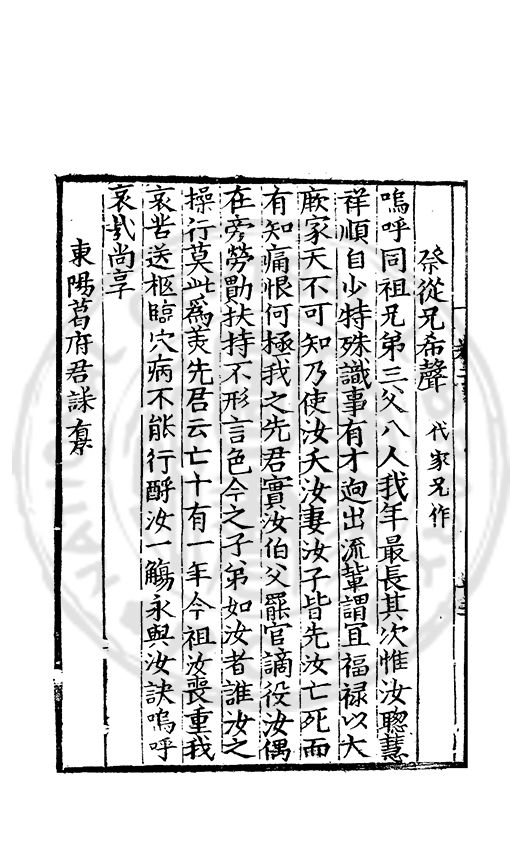 祭從兄希聲 代家兄作
嗚呼同祖兄弟三父八人我年最長其次惟汝聰慧
祥順自少特殊識事有才逈出流輩謂宜福禄以大
厥家天不可知乃使汝夭汝妻汝子皆先汝亡死而
有知痛恨何極我之先君實汝伯父罷官謫役汝偶
在旁勞勩扶持不形言色今之子弟如汝者誰汝之
操行莫此爲美先君云亡十有一年今祖汝喪重我
哀苦送柩臨穴病不能行酹汝一觴永與汝訣嗚呼
哀哉尚享
東陽葛府君誄 有序